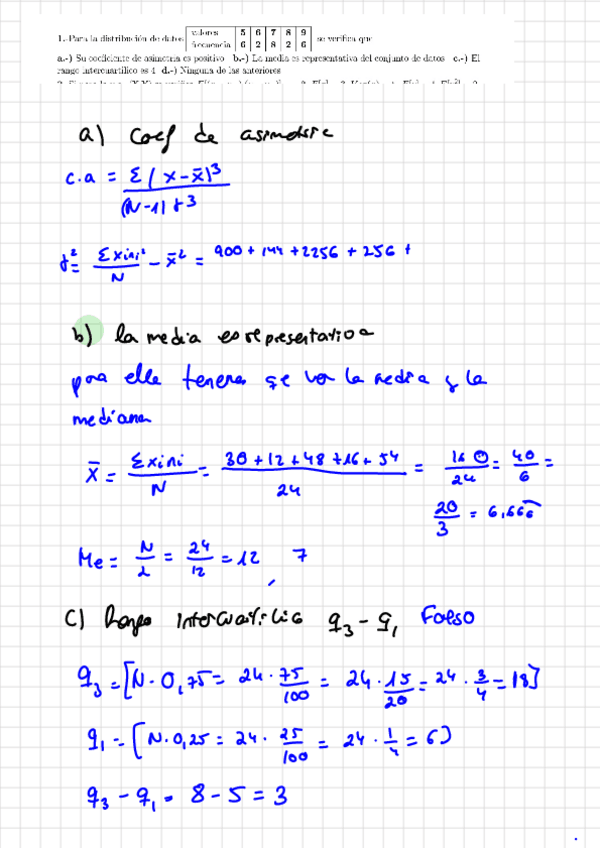 1.-Para la distribución de datos valores 5 6 7 8 9 se verifica que
frecuencia 6 2 8 2 6
a.-) Su coeficiente de asimetria es positivo b.-) La media es representativa del conjunto de datos c.-) El
rango intercuartilico es 4 d.-) Ninguna de las anteriores
a) coef de asimetria
c.a = Σ(x-x̄)³ / (N-1) s³
s² = Σxi ni² / N - x̄² = 900 + 144 + 2256 + 256 +
b) la media es representativa
para ello tenemos que ver la media y la
mediana
x̄ = Σxini / N = 30 + 12 + 48 + 16 + 54 / 24 = 160 / 24 = 40 / 6 =
20 / 3 = 6,666
Me = N / 2 = 24 / 12 = 12, 7
c) Rango intercuartilico q₃ - q₁ Falso
q₃ = [N · 0,75 = 24 · 75/100 = 24 · 15/20 = 24 · 3/4 = 18]
q₁ = [N·0,25 = 24 · 25/100 = 24 · 1/4 = 6]
q₃ - q₁ = 8 - 5 = 3